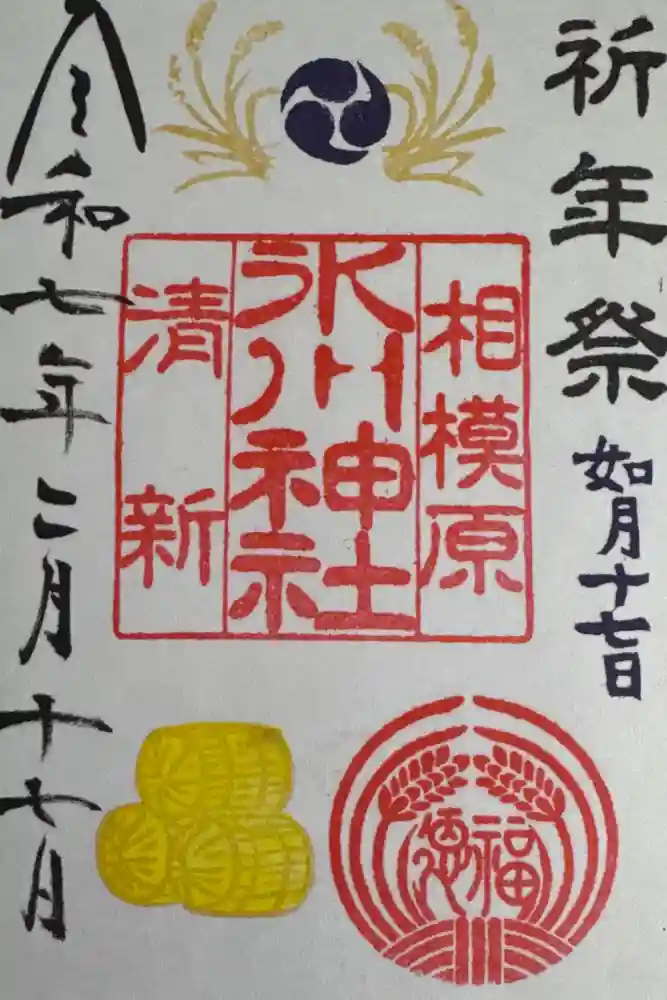 祈年祭
如月十七日
相模原
氷川神社
清新
福徳
令和七年二月十七日